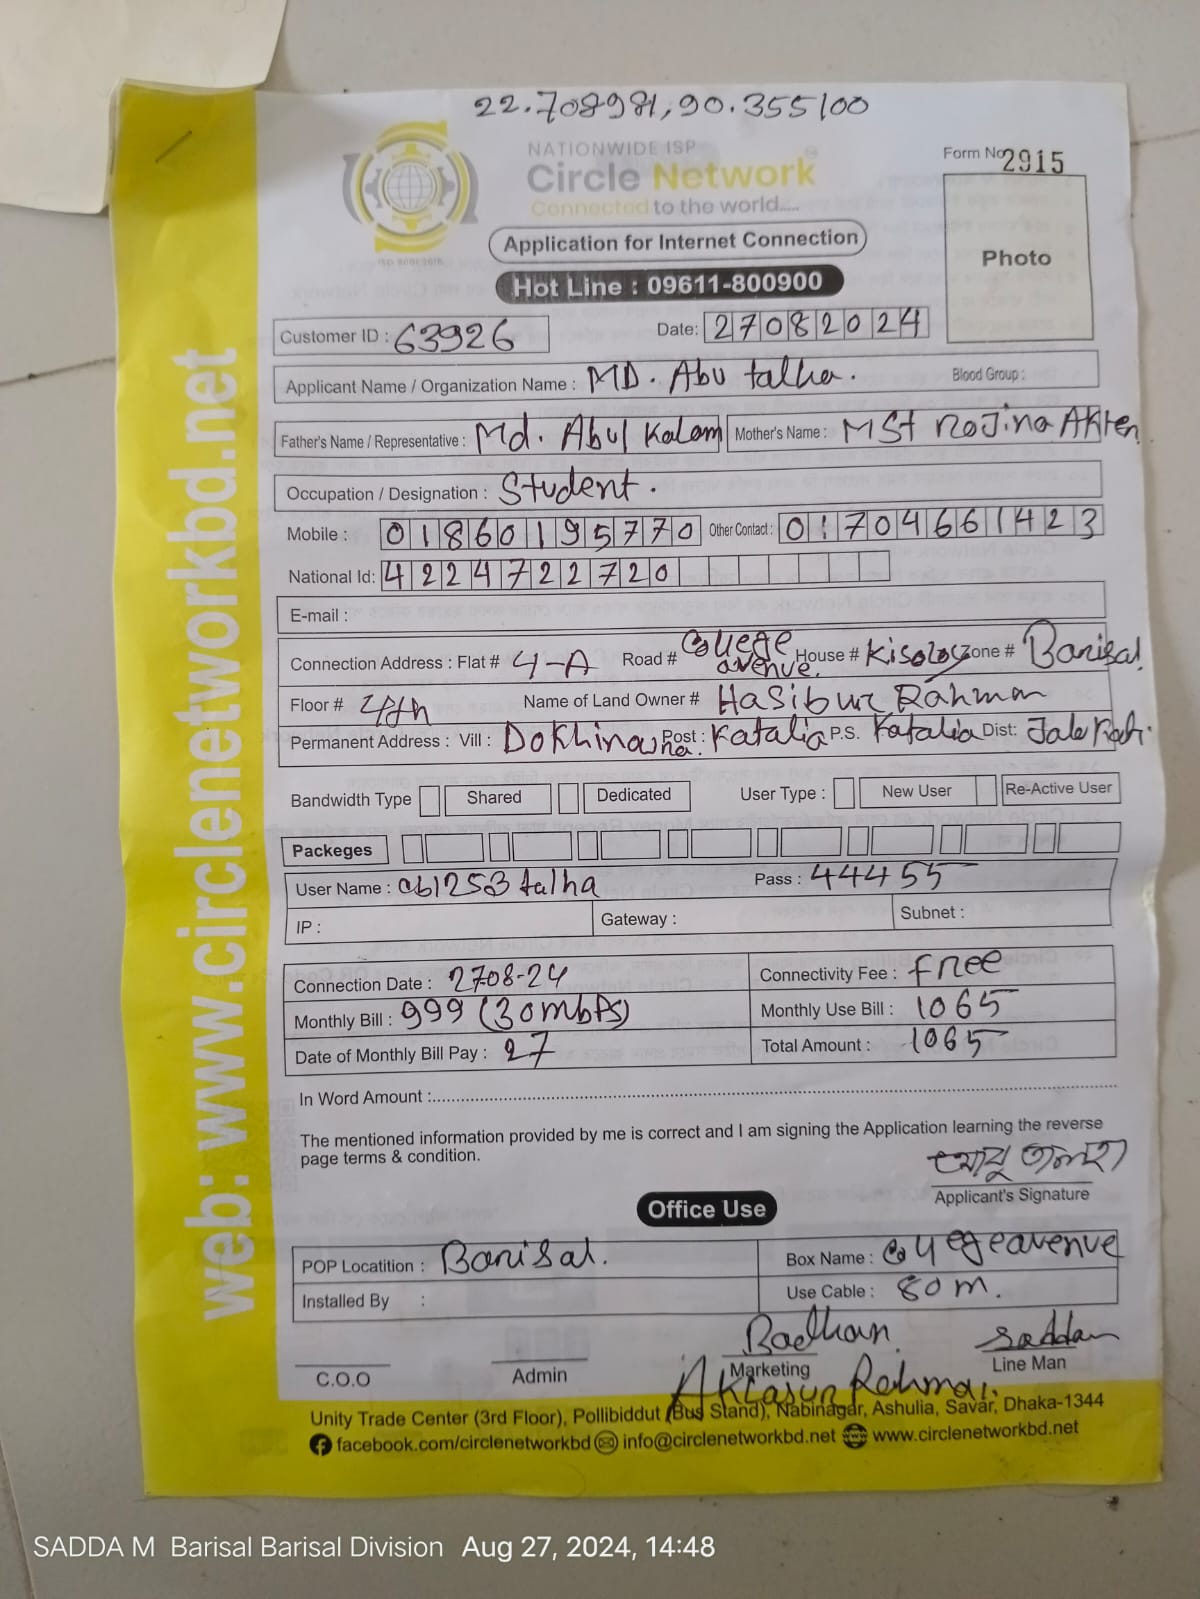 22.708981,90.355100
NATIONWIDE ISP
Circle Network
Connected to the world....
Form No 2915
Photo
Application for Internet Connection
Hot Line : 09611-800900
Customer ID : 63926
Date: 27082024
Applicant Name / Organization Name : MD. Abu talha. Blood Group :
Father's Name / Representative : Md. Abul Kalam Mother's Name : MSt RoJina Akter
Occupation / Designation : Student.
Mobile : 01860195770 Other Contact : 01704661423
National Id: 4224722720
E-mail :
Connection Address : Flat # 4-A Road # College avenue. House # Kisoloy Zone # Barisal
Floor # 4th Name of Land Owner # Hasibur Rahman
Permanent Address : Vill : Post : Katalia P.S. Katalia Dist:
Bandwidth Type Shared Dedicated User Type : New User Re-Active User
Packeges
User Name : cb1253talha Pass : 44455
IP : Gateway : Subnet :
Connection Date : 2708-24 Connectivity Fee : free
Monthly Bill : 999 (30mbps) Monthly Use Bill : 1065
Date of Monthly Bill Pay : 27 Total Amount : 1065
In Word Amount :
The mentioned information provided by me is correct and I am signing the Application learning the reverse
page terms & condition.
আবু তালহা
Applicant's Signature
Office Use
POP Locatition : Barisal. Box Name : College avenue
Installed By : Use Cable : 80m.
Badhan Saddam
C.O.O Admin Marketing Line Man
Rahman
Unity Trade Center (3rd Floor), Pollibiddut (Bus Stand), Nabinagar, Ashulia, Savar, Dhaka-1344
facebook.com/circlenetworkbd info@circlenetworkbd.net www.circlenetworkbd.net
web: www.circlenetworkbd.net
SADDA M Barisal Barisal Division Aug 27, 2024, 14:48